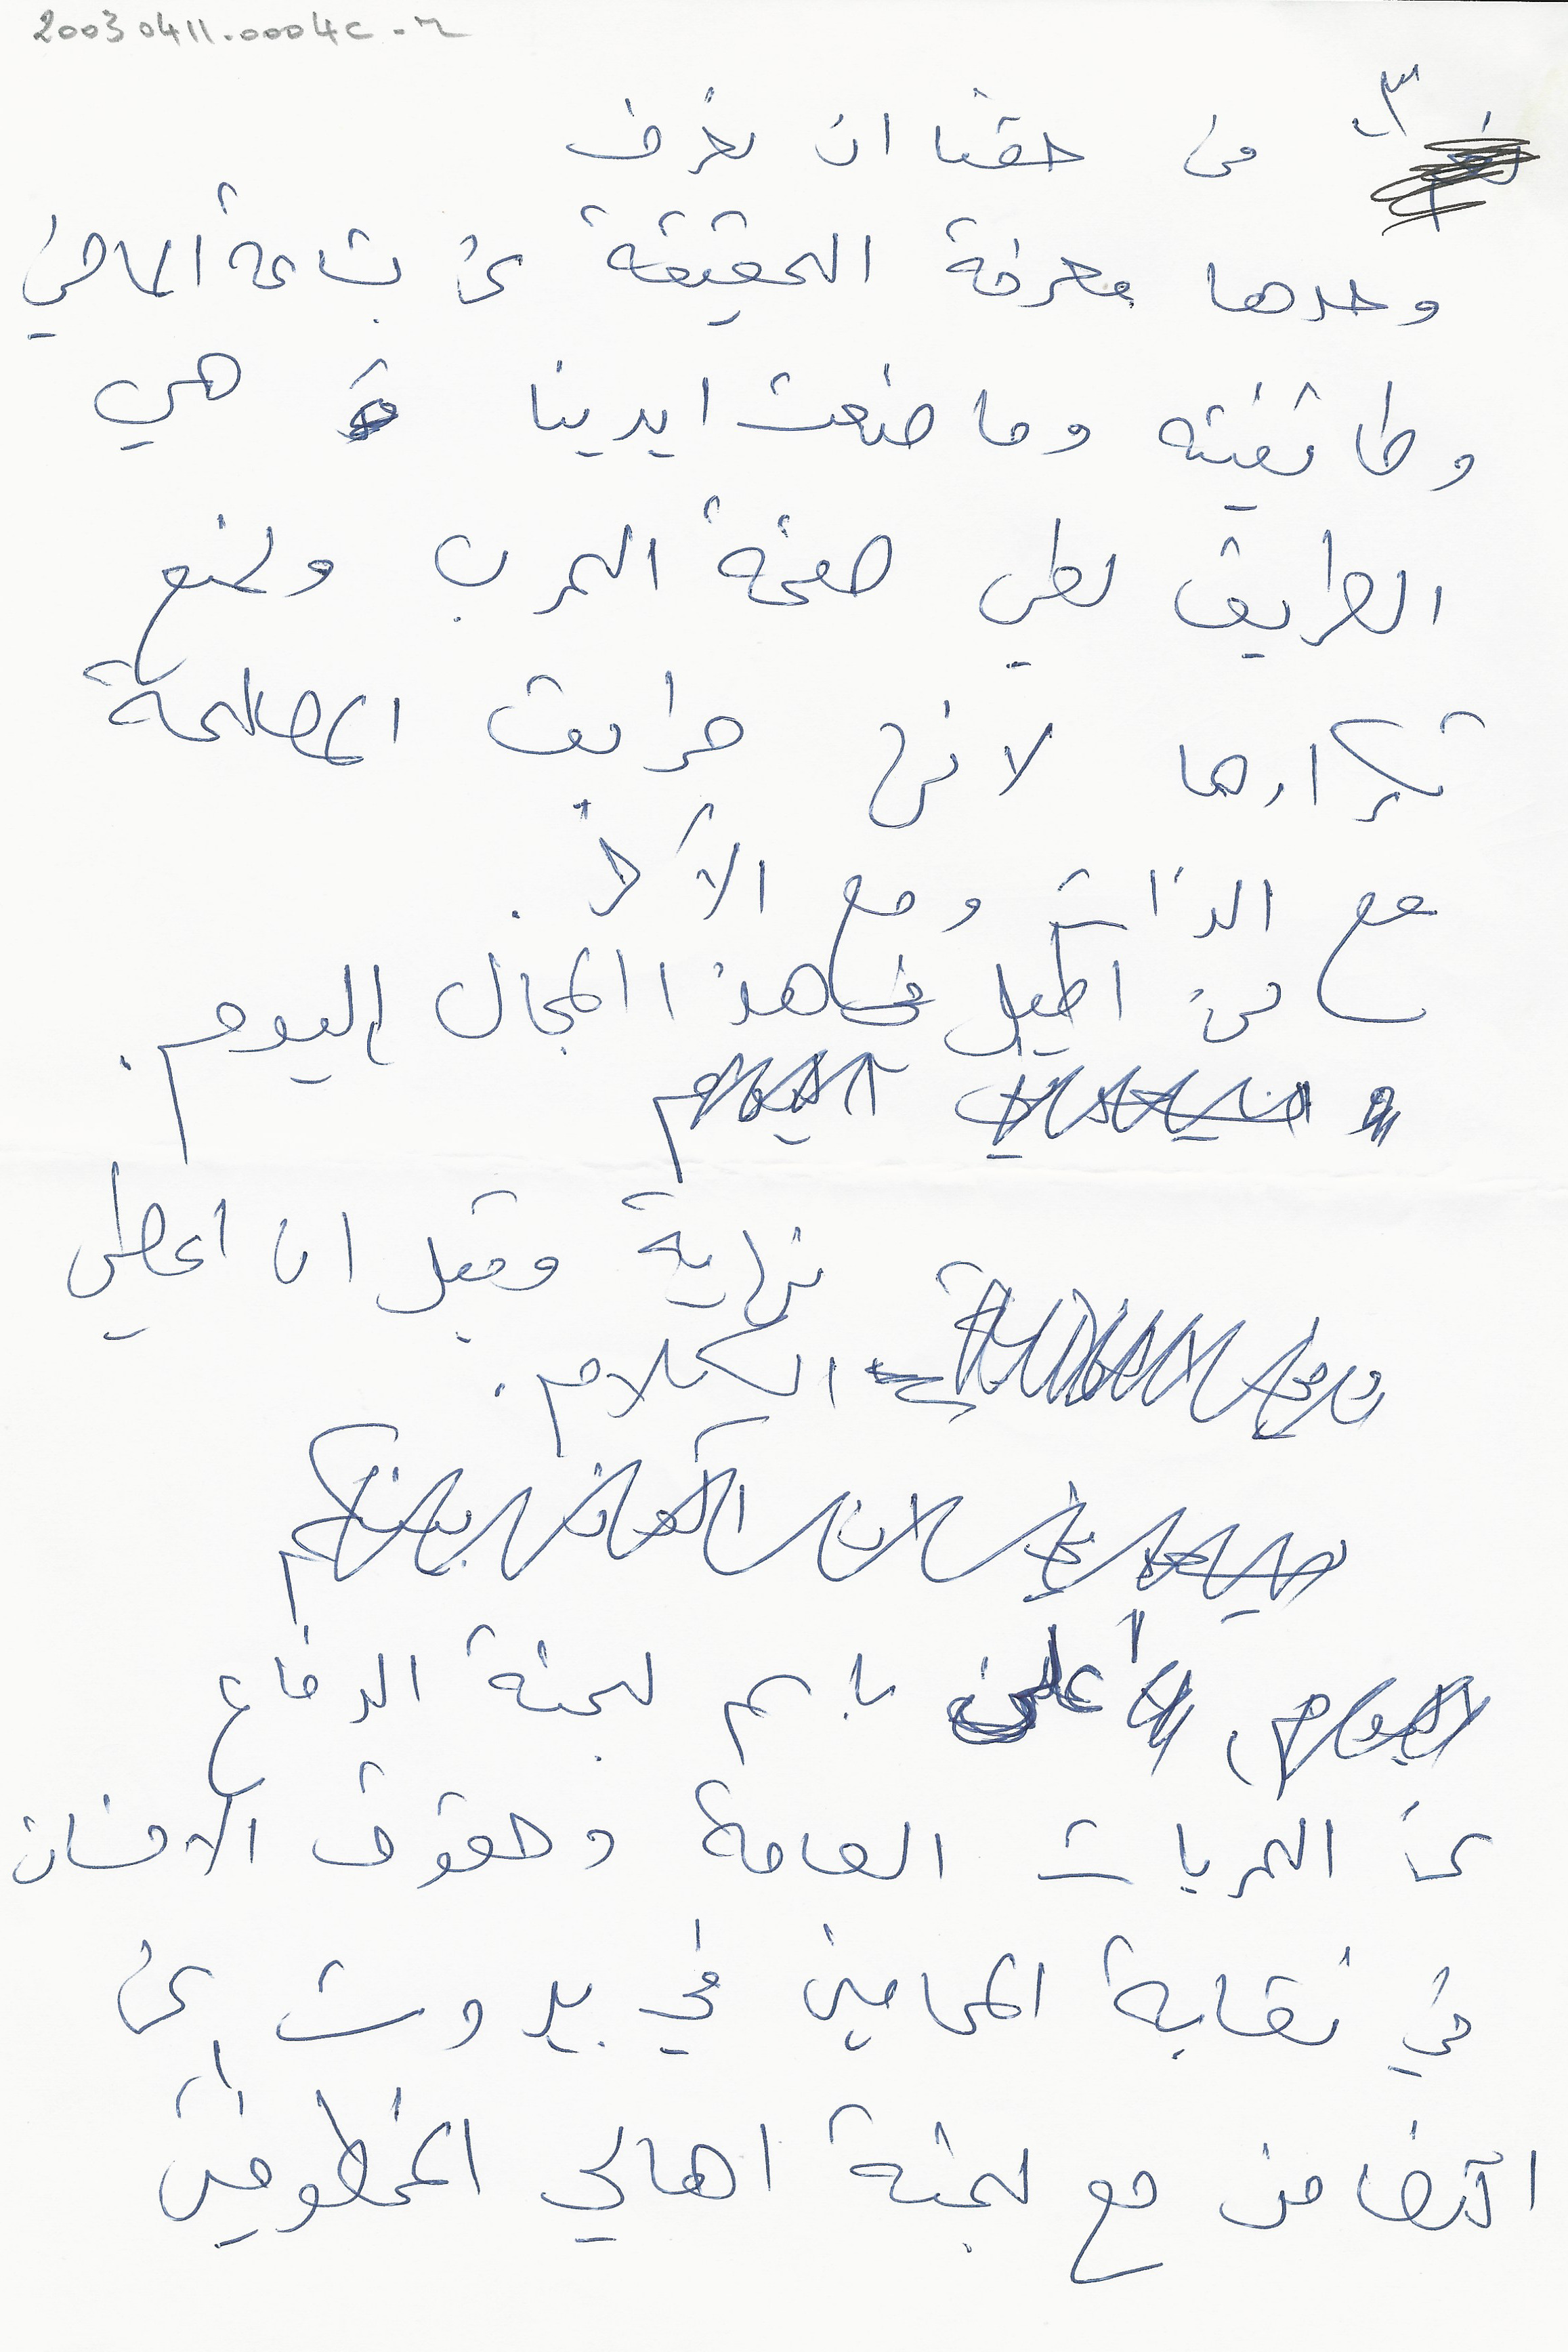 20030411.0004c-r
٣- من حقنا ان نعرف
وحدها معرفة الحقيقة عن بشاعة الماضي
وطائفيته وما صنعت ايدينا هي
الطريق لطي صفحة الحرب ولمنع
تكرارها لانها طريق المصالحة
مع الذات ومع الآخر.
لن اطيل في هذا المجال اليوم.
نهاية وقبل ان اعطي
الكلام.
أعلن باسم لجنة الدفاع
عن الحريات العامة وحقوق الانسان
في نقابة المحامين في بيروت عن
التضامن مع لجنة اهالي المخطوفين